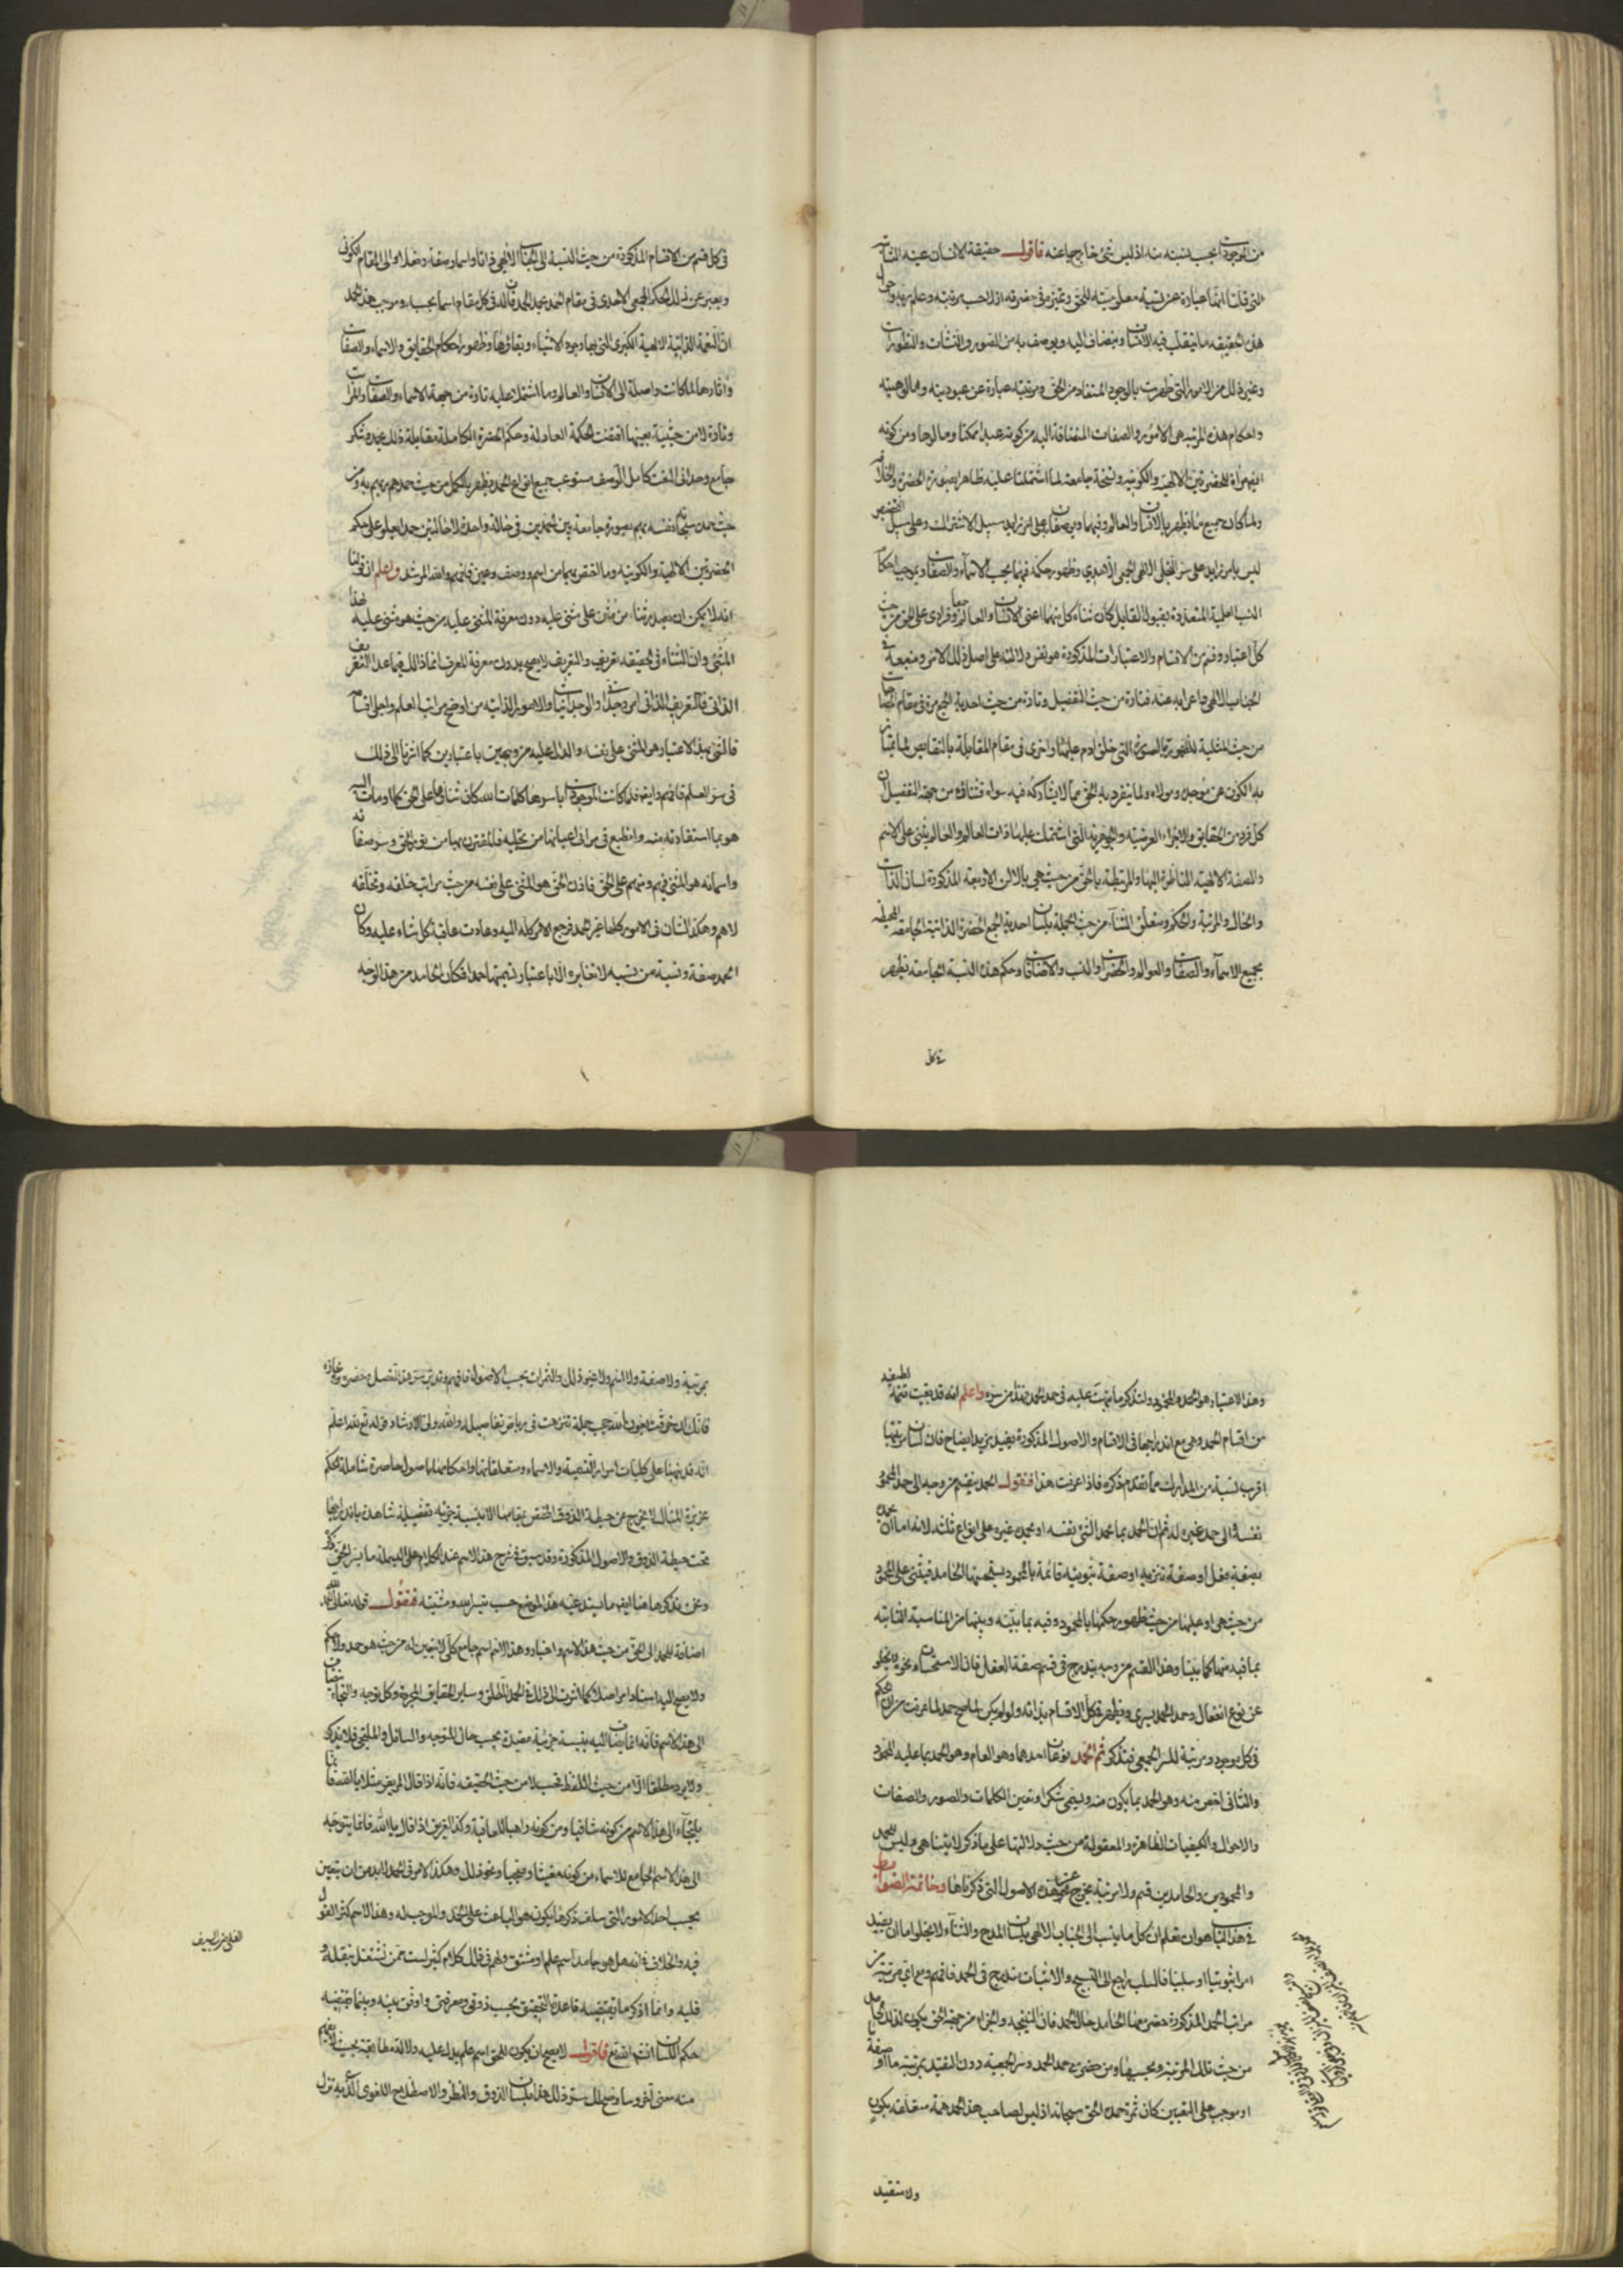 من الموجودات بحسب نسبته منه اذ ليس شئ خارجا عنه فاقول حقيقة الانسان عينه الثابتة
التى قلنا انها عبارة عن نسبة معلوميته للحق وتميزه فى حضرته ازلا حسب رتبته وعلم ربه واحوال
هذه الحقيقة ما يتقلب فيه الانسان وينضاف اليه ويوصف به من الصور والنشآت والتطورات
وغير ذلك من الامور التى ظهرت بالوجود المستفاد من الحق ومرتبته عبارة عن عبوديته ومألوهيته
واحكام هذه المرتبة هى الامور والصفات المنضافة اليه من كونه عبدا ممكنا ومألوها ومن كونه
ايضا مرآة للحضرتين الالهية والكونية ونسخة جامعة لما اشتملتا عليه ظاهرا بصورة الحضرة والخلافة
ولما كان جميع ما يظهر بالانسان والعالم وفيهما ويوصفان به على سبيل الاشتراك وعلى سبيل التخصيص
ليس بامر زايد على سر التجلى الالهى الجمعى الاحدى وظهور حكمه فيهما بحسب الاسماء والصفات وبموجب احكام
النسب العلمية المتعددة بقبول القابل كان ثناء كل منهما اعنى الانسان والعالم جمعا وفرادى على الحق من حيث
كل اعتبار وقسم من الاقسام والاعتبارات المذكورة هو نفس دلالته على اصل ذلك الامر ومنبعه فى
الجناب الالهى واعرابه عنه فتارة من حيث التفصيل وتارة من حيث احدية الجمع مرة فى مقام المضاهاة
من حيث المثلية للظهور بالصورة التى خلق آدم عليها واخرى فى مقام المقابلة بالنقايص لما يمتاز
به الكون عن موجده ومولاه ولما ينفرد به الحق مما لا يشاركه فيه سواه فثناؤه من جهة التفصيل ان
كل فرد من الحقايق والاجزاء العرضية والجوهرية التى اشتملت عليها ذات العالم والعالم يثنى على الاسم
والصفة الالهية الناظرة اليها والمرتبطة بالحق من حيث هى بالالسن الاربعة المذكورة لسان الذات
والحال والمرتبة والحكم ومتعلق الثناء من حيث الجملة بلسان احدية الجمع الحضرة الذاتية الجامعة المحيطة
بجميع الاسماء والصفات والعوالم والحضرات والنسب والاضافات وحكم هذه النسبة الجامعة يظهر
فى كل
فى كل قسم من الاقسام المذكورة من حيث النسبة الى الجناب الالهى ذاتا واسما وصفة وفعلا والى المقام الكونى
ويعبر عن ذلك الحكم الجمعى الاحدى فى مقام الحمد بحمد الحمد فان له فى كل مقام اسما بحسبه وموجب هذا الحمد
ان النعمة الذاتية الالهية الكبرى التى بها وجود الاشياء وبقاؤها وظهور احكام الحقايق والاسماء والصفات
وآثارها لما كانت واصلة الى الانسان والعالم وما اشتملا عليه تارة من جهة الاسماء والصفات والمراتب
وتارة لا من حيثية بعينها اقتضت الحكمة العادلة وحكم الحضرة الكاملة مقابلة ذلك بحمد وشكر
جامع وحدانى النعت كامل الوصف مستوعب جميع انواع الحمد يظهر بالكمل من حيث حمدهم ربهم به ومن
حيث حمده سبحانه نفسه بهم بصورة جامعة بين الحمدين فى حالة واحدة لا حالتين حمدا يعلو على حكم
الحضرتين الالهية والكونية وما اختص بهما من اسم ووصف وعين فافهم والله المرشد واعلم ان قولنا
انه لا يمكن ان يصدر ثناء من مثن على مثنى عليه دون معرفة المثنى عليه من حيث هو مثنى عليه لهذا
المثنى وان الثناء فى الحقيقة تعريف والتعريف لا يصح بدون معرفة المعرف انما ذلك فيما عدا التعريف
الذاتى فالتعريف الذاتى امر وجدانى والوجدانيات والامور الذاتية من اوضح مراتب العلم واعلى اقسامه
فالمثنى بهذا الاعتبار هو المثنى على نفسه والدال عليه من وجهين باعتبارين كما اشرنا الى ذلك
فى سر العلم فافهم وايضا فلما كانت الموجودات باسرها كلمات الله كان ثناؤها على الحق كما اومأت اليه
هو بما استفادته منه وانطبع فى مرائى اعيانها من تجليه فالمقترن بها من نور الحق وسر صفاته
واسمائه هو المثنى فيهم ومنهم على الحق فاذن الحق هو المثنى على نفسه من حيث مراتب خلقه وبخلقه
لا هم وهكذا الشان فى الامور كلها غير الحمد فرجع الامر كله اليه وعادت عاقبة كل ثناء عليه وكان
الحمد صفة ونسبة من نسبه لا تغايره الا باعتبار تسميتها حمدا فكان الحامد من هذا الوجه
وهذا الاعتبار هو الحمد والمحمود واستذكر ما نبهت عليه فى حمد الحمد من سره واعلم انه قد بقيت تتمة لطيفة
من اقسام الحمد وهى مع اندراجها فى الاقسام والاصول المذكورة يفيد مزيد ايضاح فان لسان مرتبتها
اقرب نسبة من المدارك مما تقدم ذكره فاذا عرفت هذا فنقول الحمد ينقسم من وجه الى حمد المحمود
نفسه والى حمد غيره له ثم ان الحمد بما يحمد الشئ نفسه او يحمده غيره على انواع ثلثة لانه اما ان يحمده
بصفة فعل او صفة تنزيه او صفة ثبوتية قائمة بالمحمود يستحسنها الحامد فيثنى على المحمود
من حيث هى او عليها من حيث ظهور حكمها بالمحمود وفيه بما بينه وبينها من المناسبة الثابتة
بما فيه منها كما بينا وهذا القسم من وجه يندرج فى قسم صفة الفعل فان الاستحسان ونحوه لا يخلو
عن نوع انفعال وحمد الحمد يسرى ويظهر فى كل الاقسام بذاته ولو لم يكن لما صح حمد لما عرفت من ان الحكم
فى كل موجود ومرتبة للسر الجمعى فتذكر ثم الحمد نوعان احدهما وهو العام وهو الحمد بما عليه المحمود
والثانى اخص منه وهو الحمد بما يكون منه ويسمى شكرا وتعين الكلمات والصور والصفات
والاحوال والكيفيات الظاهرة والمعقولة من حيث دلالتها على ما ذكر لا يتناهى وليس للحمد
والمحمودين والحامدين قسم ولا مرتبة يخرج عن هذه الاصول التى ذكرناها وخاتمة الضوابط
فى هذا الباب هو ان تعلم ان كل ما ينسب الى الجناب الالهى بلسان المدح والثناء لا يخلو اما ان يفيد
امرا ثبوتيا او سلبيا فالسلب راجع الى التسبيح والاثبات مندرج فى الحمد فافهم ومع اى مرتبة من
مراتب الحمد المذكورة حضر معها الحامد حال الحمد فان النتيجة والجزاء من جهة الحق يكون لذلك الحامد
من حيث تلك المرتبة وبحسبها ومن حضر مع حمد الحمد وسر الجمعية دون التقيد بمرتبة ما او صفة
او موجب على التعيين كان ثمرة حمده الحق سبحانه اذ ليس لصاحب هذا الحمد همة متعلقة بكون
ولا متقيد
بمرتبة ولا صفة ولا اسم ولا غير ذلك والثمرات بحسب الاصول فافهم وتدبر سر هذا الفصل وحصره وايجازه
فانك ان خرقت بعون الله حجب جمله تنزهت فى رياض تفاصيله والله ولى الارشاد قوله تع لله اعلم
انه قد نبهنا على كليات اسرار التسمية والاسماء ومتعلقاتها واحكامها باصول حاصرة شاملة الحكم
عزيزة المثال لا يخرج عن حيطة الذوق المختص بمقامها الا نسبة جزئية تفصيلية شاهدة باندراجها
تحت حيطة الذوق والاصول المذكورة وقد سبق فى شرح هذا الاسم عند الكلام على البسملة ما يسر الحق ذكره
ونحن نذكر ههنا ايضا ما يستدعيه هذا الموضع حسب تيسير الله ومشيته فنقول قوله تعالى الحمد لله
اضافة للحمد الى الحق من حيث هذا الاسم واخبار وهذا الاسم اسم جامع كلى لا يتعين له من حيث هو حمد ولا حكم
ولا يصح اليه اسناد امر اصلا كما اشرت اليه فى ذلك الحمد المطلق وساير الحقايق المجردة وكل توجه والتجاء ينضاف
الى هذا الاسم فانه انما ينضاف اليه بنسبة جزئية مقيدة بحسب حال المتوجه والسائل والملتجى فلا يذكر
ولا يرد مطلقا الا من حيث اللفظ فحسب لا من حيث الحقيقة فانه اذا قال المريض مثلا يا الله فانما
يلتجاء الى هذا الاسم من كونه شافيا ومن كونه واهبا للعافية وكذا الغريق اذا قال يا الله فانما يتوجه
الى هذا الاسم الجامع للاسماء من كونه مغيثا ومنجيا ونحو ذلك وهكذا الامر فى الحمد لابد من ان يتعين
بحسب احد الامور التى سلف ذكرها يكون هو الباعث على الحمد والموجب له وهذا الاسم كثر القول
فيه والخلاف فى انه هل هو جامد اسم علم او مشتق ولهم فى ذلك كلام كثير لست ممن نشتغل بنقله و
قلبه وانما اذكر ما يقتضيه قاعدة التحقيق بحسب ذوقى ومعرفتى واوفق بينه وبين ما يقتضيه
حكم اللسان انشاء الله تع فاقول لا يصح ان يكون للحق اسم علم يدل عليه دلالة مطابقة بحيث لا يفهم
منه معنى آخر وساوضح لك سر ذلك هذا بلسان الذوق والنظر والاصطلاح اللغوى الذى به نزل